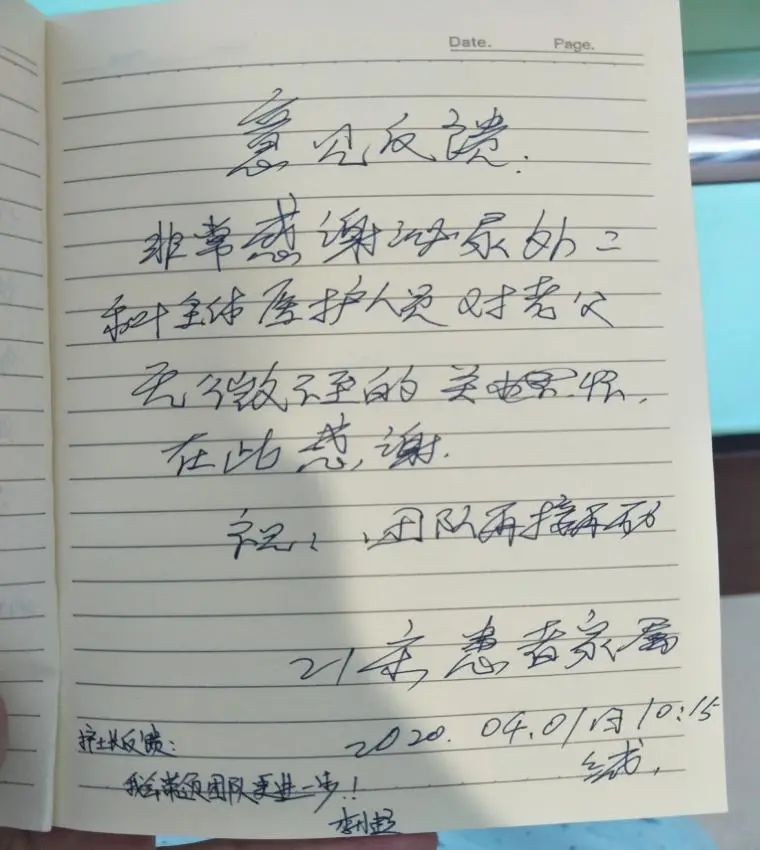 Date. Page.
意见反馈.
非常感谢泌尿外二
和叶主体医护人员对老父
无微不至的关怀,
在此感谢.
祝: 团队再接再励
21床患者家属
2020.04.01日10:15
护士长反馈:
我会带领团队更进一步!